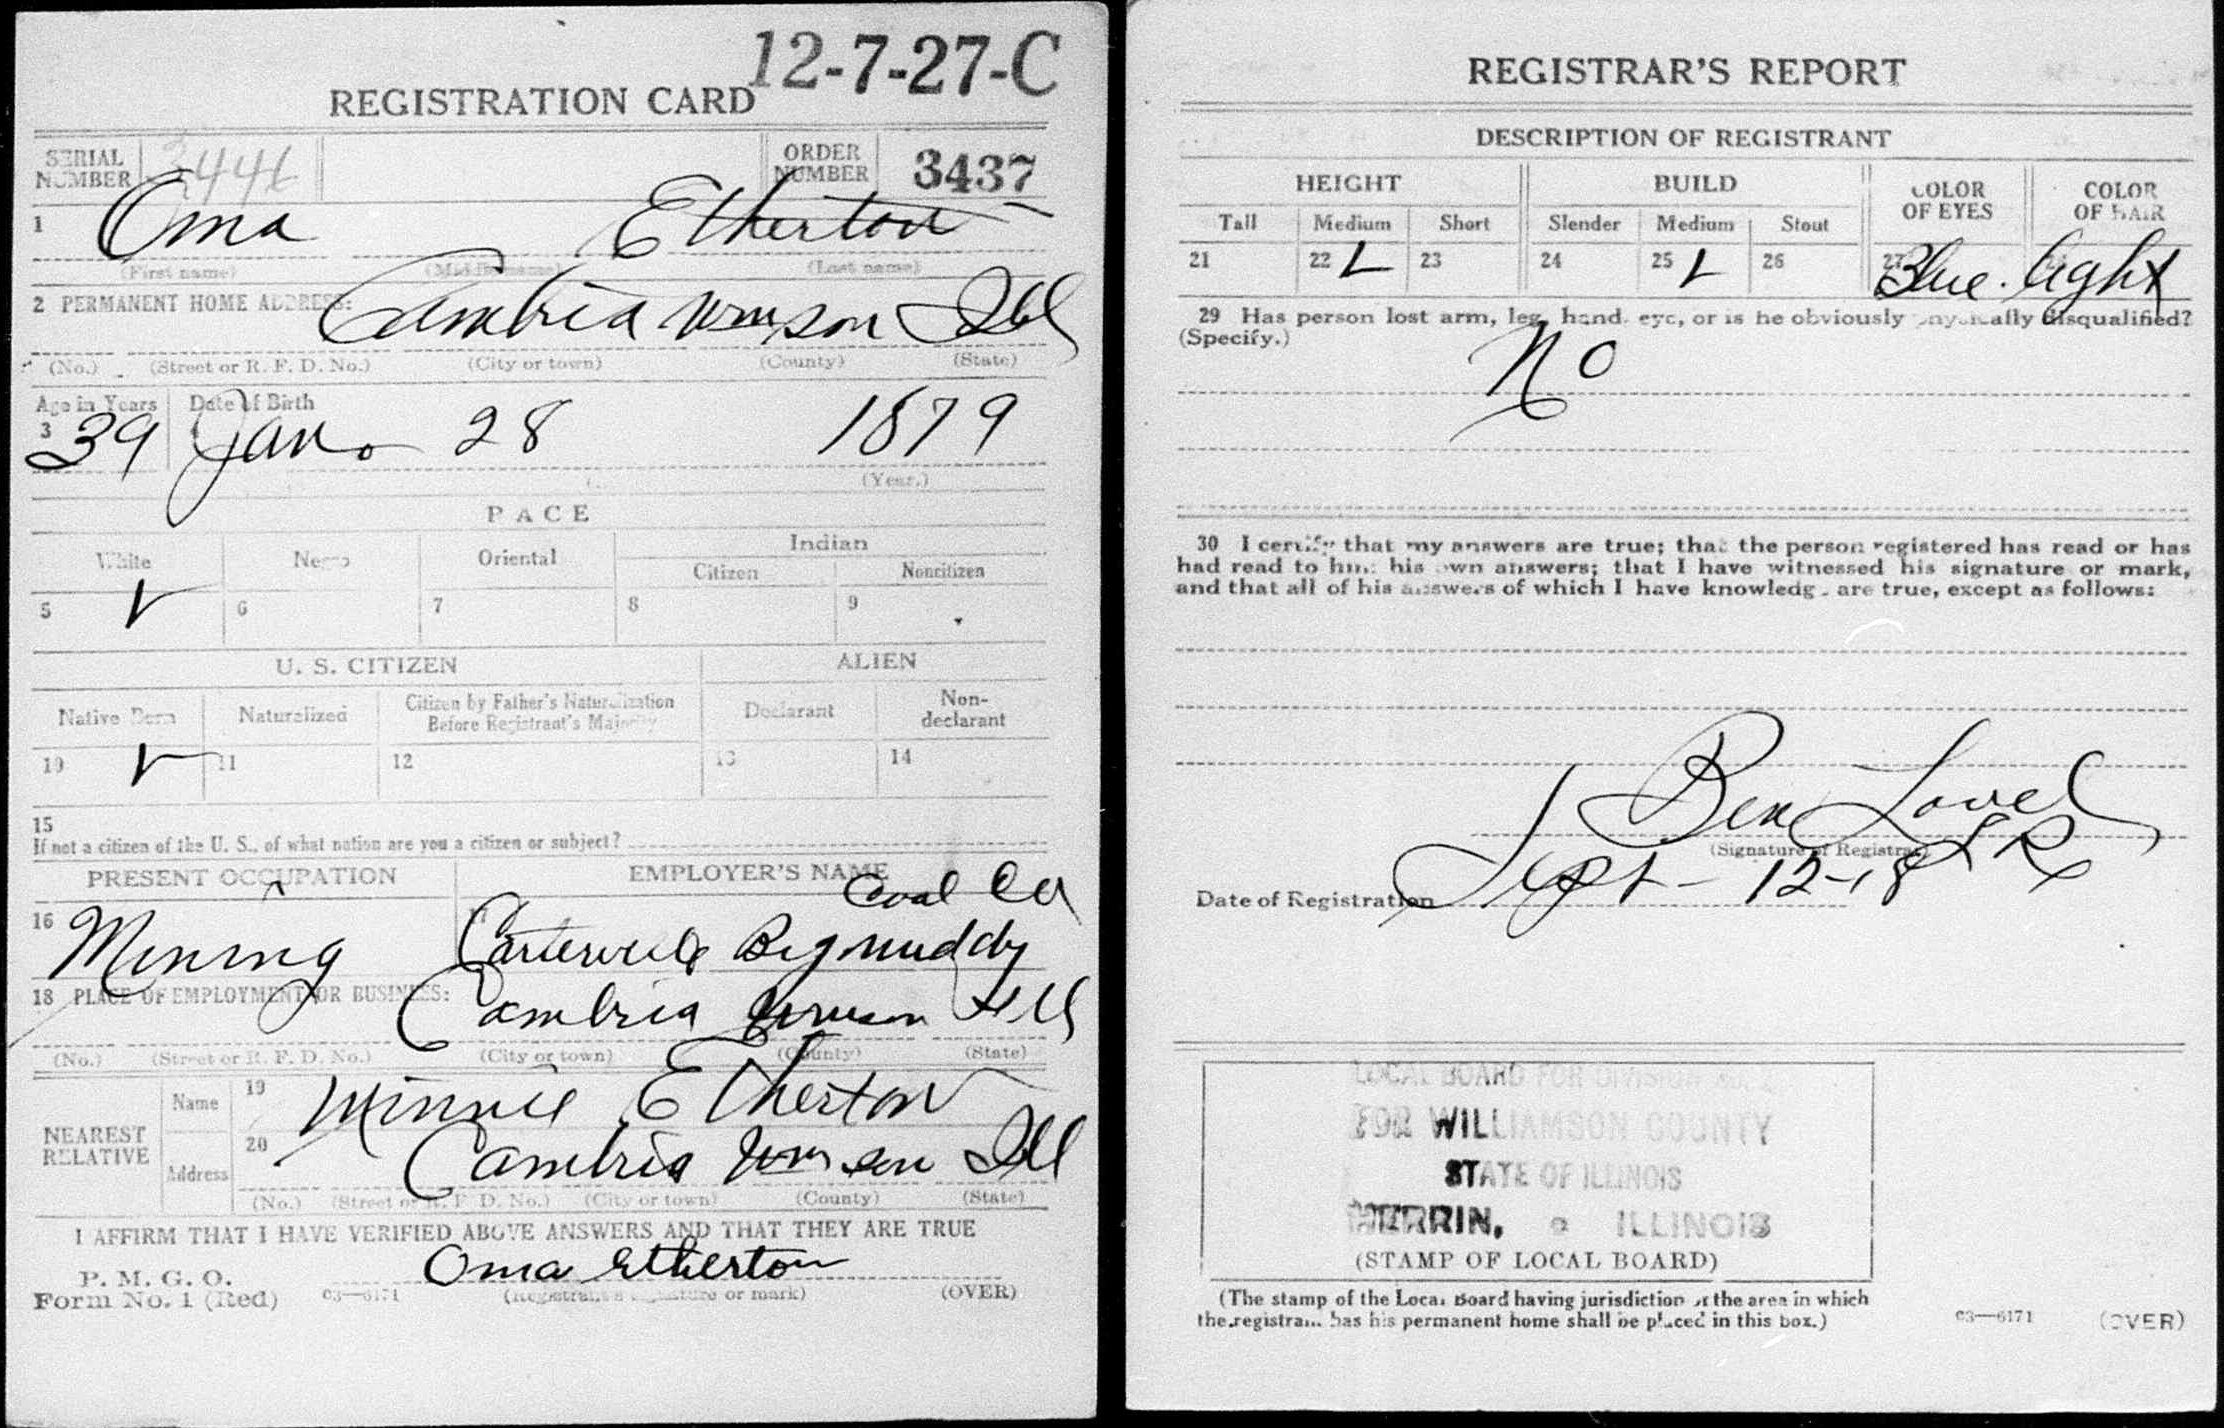 12-7-27-C
REGISTRATION CARD
SERIAL NUMBER 3446 ORDER NUMBER 3437
1 Oma Etherton
(First name) (Middle name) (Last name)
2 PERMANENT HOME ADDRESS: Cambria Wmson Ill
(No.) (Street or R. F. D. No.) (City or town) (County) (State)
Age in Years Date of Birth
3 39 Jan. 28 1879
(Year.)
RACE
White Negro Oriental Indian
Citizen Noncitizen
5 6 7 8 9
U. S. CITIZEN ALIEN
Native Born Naturalized Citizen by Father's Naturalization Before Registrant's Majority Declarant Non-declarant
10 11 12 13 14
15
If not a citizen of the U. S., of what nation are you a citizen or subject?
PRESENT OCCUPATION EMPLOYER'S NAME
Coal Co
16 Mining 17 Carterville Big muddy
18 PLACE OF EMPLOYMENT OR BUSINESS: Cambria Wmson Ill
(No.) (Street or R. F. D. No.) (City or town) (County) (State)
NEAREST RELATIVE
Name 19 Minnie Etherton
Address 20 Cambria Wmson Ill
(No.) (Street or R. F. D. No.) (City or town) (County) (State)
I AFFIRM THAT I HAVE VERIFIED ABOVE ANSWERS AND THAT THEY ARE TRUE
P. M. G. O.
Form No. 1 (Red) 03—6171 Oma Etherton
(Registrant's signature or mark) (OVER)
REGISTRAR'S REPORT
DESCRIPTION OF REGISTRANT
HEIGHT BUILD COLOR OF EYES COLOR OF HAIR
Tall Medium Short Slender Medium Stout
21 22 23 24 25 26 27 Blue. light
29 Has person lost arm, leg, hand, eye, or is he obviously physically disqualified?
(Specify.) No
30 I certify that my answers are true; that the person registered has read or has
had read to him his own answers; that I have witnessed his signature or mark,
and that all of his answers of which I have knowledge are true, except as follows:
Ben Lovel
(Signature of Registrar)
Date of Registration Sept - 12-18
LOCAL BOARD FOR DIVISION No. 2
FOR WILLIAMSON COUNTY
STATE OF ILLINOIS
HERRIN, ILLINOIS
(STAMP OF LOCAL BOARD)
(The stamp of the Local Board having jurisdiction of the area in which
the registrant has his permanent home shall be placed in this box.)
03—6171 (OVER)